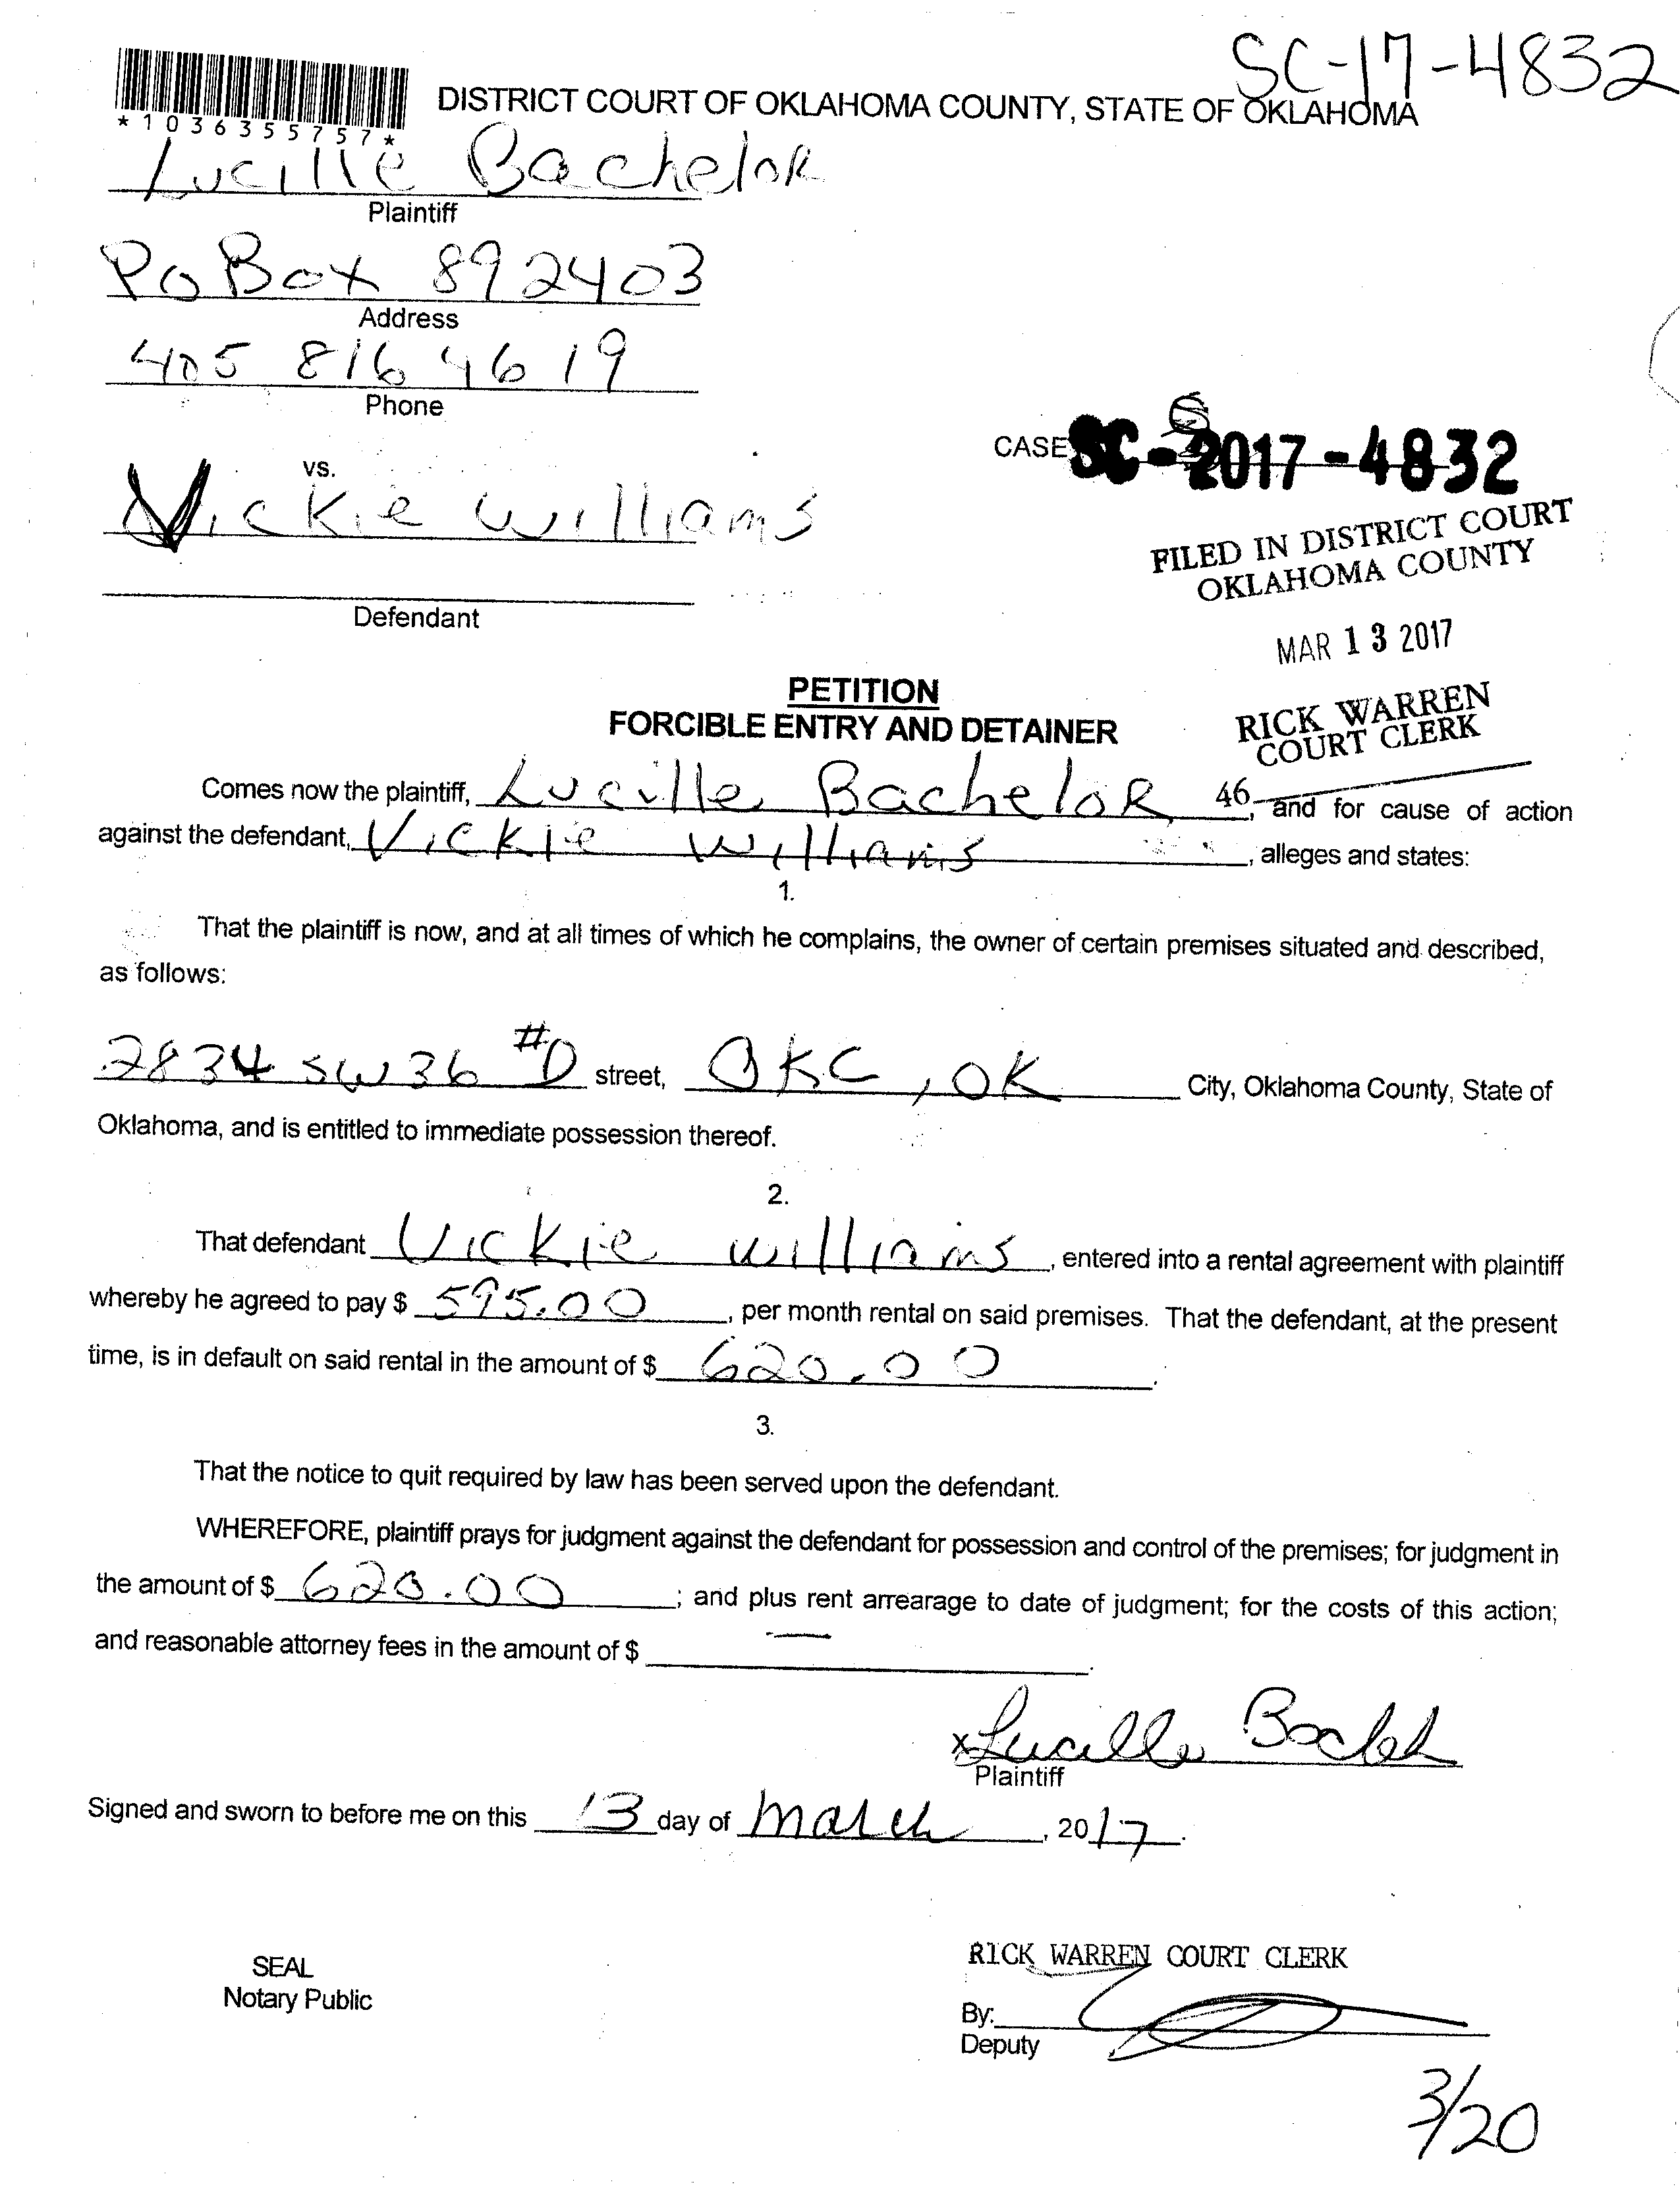 SC-17-4832
*1036355757*
DISTRICT COURT OF OKLAHOMA COUNTY, STATE OF OKLAHOMA
Lucille Bachelor
Plaintiff
PO Box 892403
Address
405 816 4619
Phone
CASE SC-2017-4832
vs.
Vickie Williams
FILED IN DISTRICT COURT
OKLAHOMA COUNTY
Defendant
MAR 13 2017
PETITION
FORCIBLE ENTRY AND DETAINER
RICK WARREN
COURT CLERK
46
Comes now the plaintiff, Lucille Bachelor, and for cause of action
against the defendant, Vickie Williams, alleges and states:
1.
That the plaintiff is now, and at all times of which he complains, the owner of certain premises situated and described,
as follows:
2834 SW 36 #D street, OKC, OK City, Oklahoma County, State of
Oklahoma, and is entitled to immediate possession thereof.
2.
That defendant Vickie Williams, entered into a rental agreement with plaintiff
whereby he agreed to pay $ 595.00, per month rental on said premises. That the defendant, at the present
time, is in default on said rental in the amount of $ 620.00.
3.
That the notice to quit required by law has been served upon the defendant.
WHEREFORE, plaintiff prays for judgment against the defendant for possession and control of the premises; for judgment in
the amount of $ 620.00; and plus rent arrearage to date of judgment; for the costs of this action;
and reasonable attorney fees in the amount of $ —.
x Lucille Bachelor
Plaintiff
Signed and sworn to before me on this 13 day of March, 2017.
SEAL
Notary Public
RICK WARREN COURT CLERK
By:
Deputy
3/20